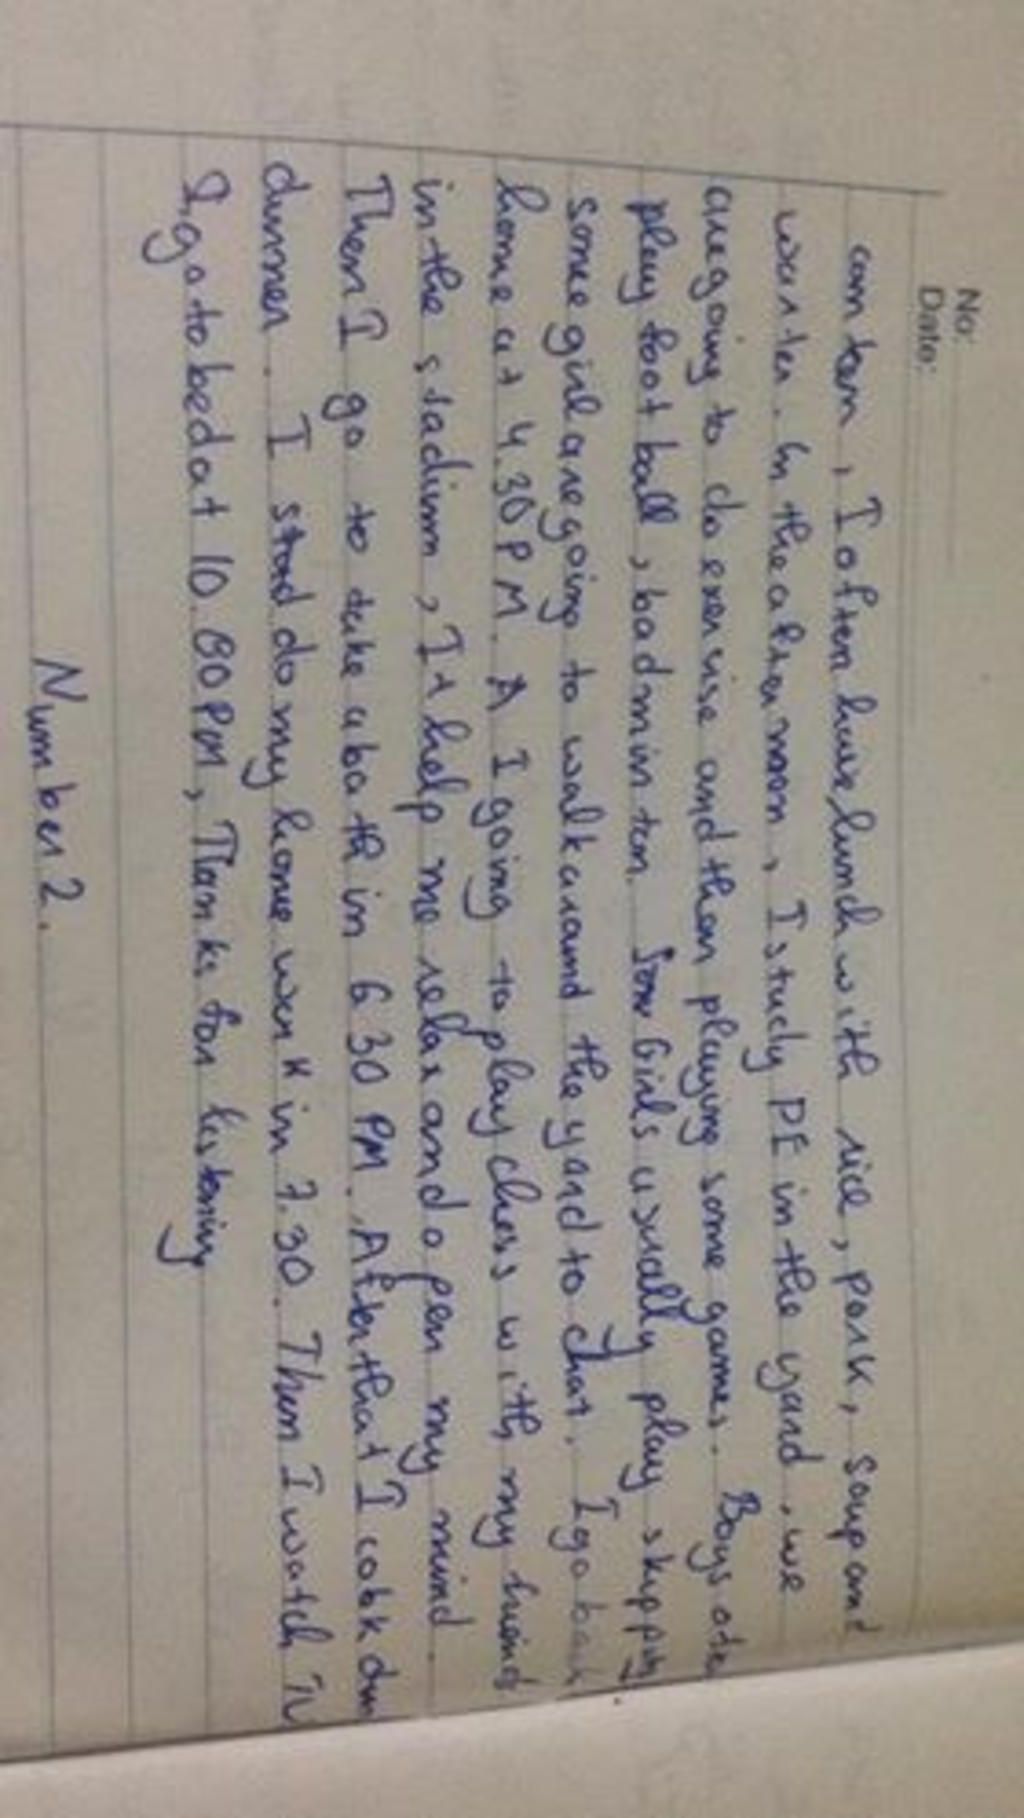 No:
Date:
canten, I often have lunch with rice, pork, soup and
warter. In the afternoon, I study PE in the yard, we
are going to do exersise and then playing some games. Boys ofte
play foot ball, badminton. Some Girls usually play skipping
some girl are going to walk around the yard to chat. I go back
home at 4.30 PM. A I going to play chess with my friend
in the stadium, It help me relax and open my mind.
Then I go to take a bath in 6 30 PM. After that I cook
dinner. I do my home work in 7.30. Then I watch TV
I go to bed at 10.00 PM, Thanks for listening
Number 2.